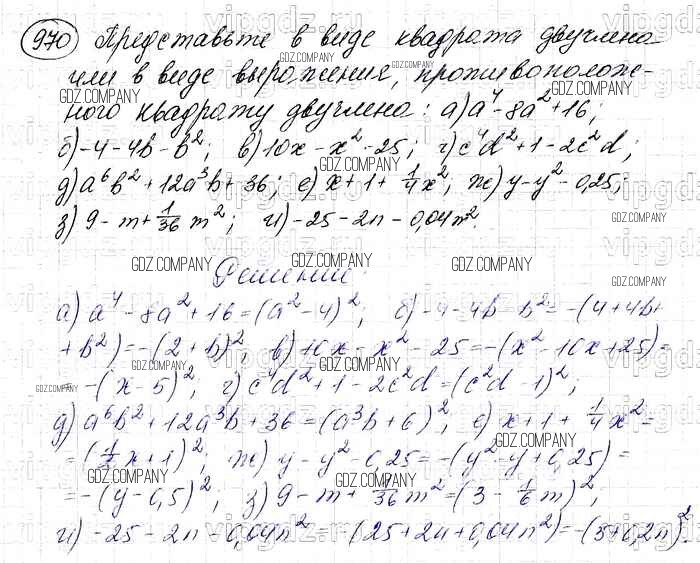 970 Представьте в виде квадрата двучлена
или в виде выражения, противополож-
ного квадрату двучлена: а) a⁴-8a²+16;
б) -4-4b-b²; в) 10x-x²-25; г) c⁴d²+1-2c²d;
д) a⁶b²+12a³b+36; е) x+1+1/4x²; ж) y-y²-0,25;
з) 9-m+1/36 m²; и) -25-2n-0,04n².
Решение:
а) a⁴-8a²+16=(a²-4)²; б) -4-4b-b²=-(4+4b+
+b²)=-(2+b)²; в) 10x-x²-25=-(x²-10x+25)=
=-(x-5)²; г) c⁴d²+1-2c²d=(c²d-1)²;
д) a⁶b²+12a³b+36=(a³b+6)²; е) x+1+1/4x²=
=(1/2x+1)²; ж) y-y²-0,25=-(y²-y+0,25)=
=-(y-0,5)²; з) 9-m+1/36m²=(3-1/6m)²;
и) -25-2n-0,04n²=-(25+2n+0,04n²)=-(5+0,2n)².
GDZ.COMPANY
vipgdz.ru